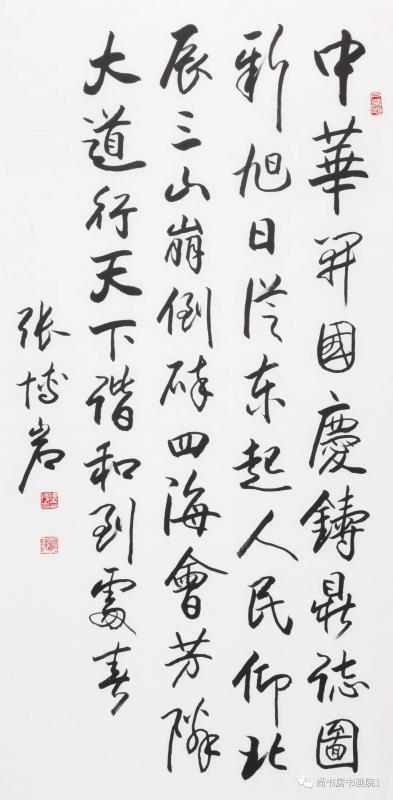 中華開國慶鑄鼎誌圖
新旭日從東起人民仰北
辰三山崩倒碎四海會芳隣
大道行天下諧和到處春
張博岩
尚书房书画院1